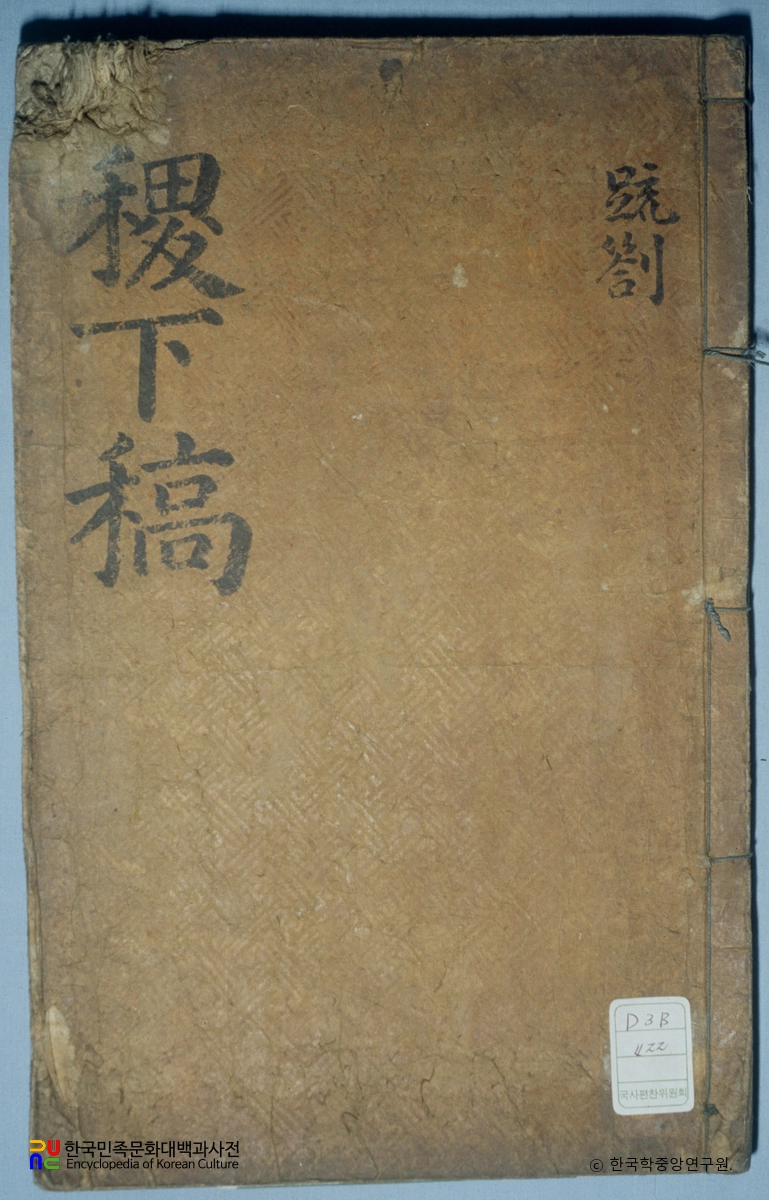 疏箚
稷下稿
D3B
422
국사편찬위원회
한국민족문화대백과사전
Encyclopedia of Korean Culture
© 한국학중앙연구원.